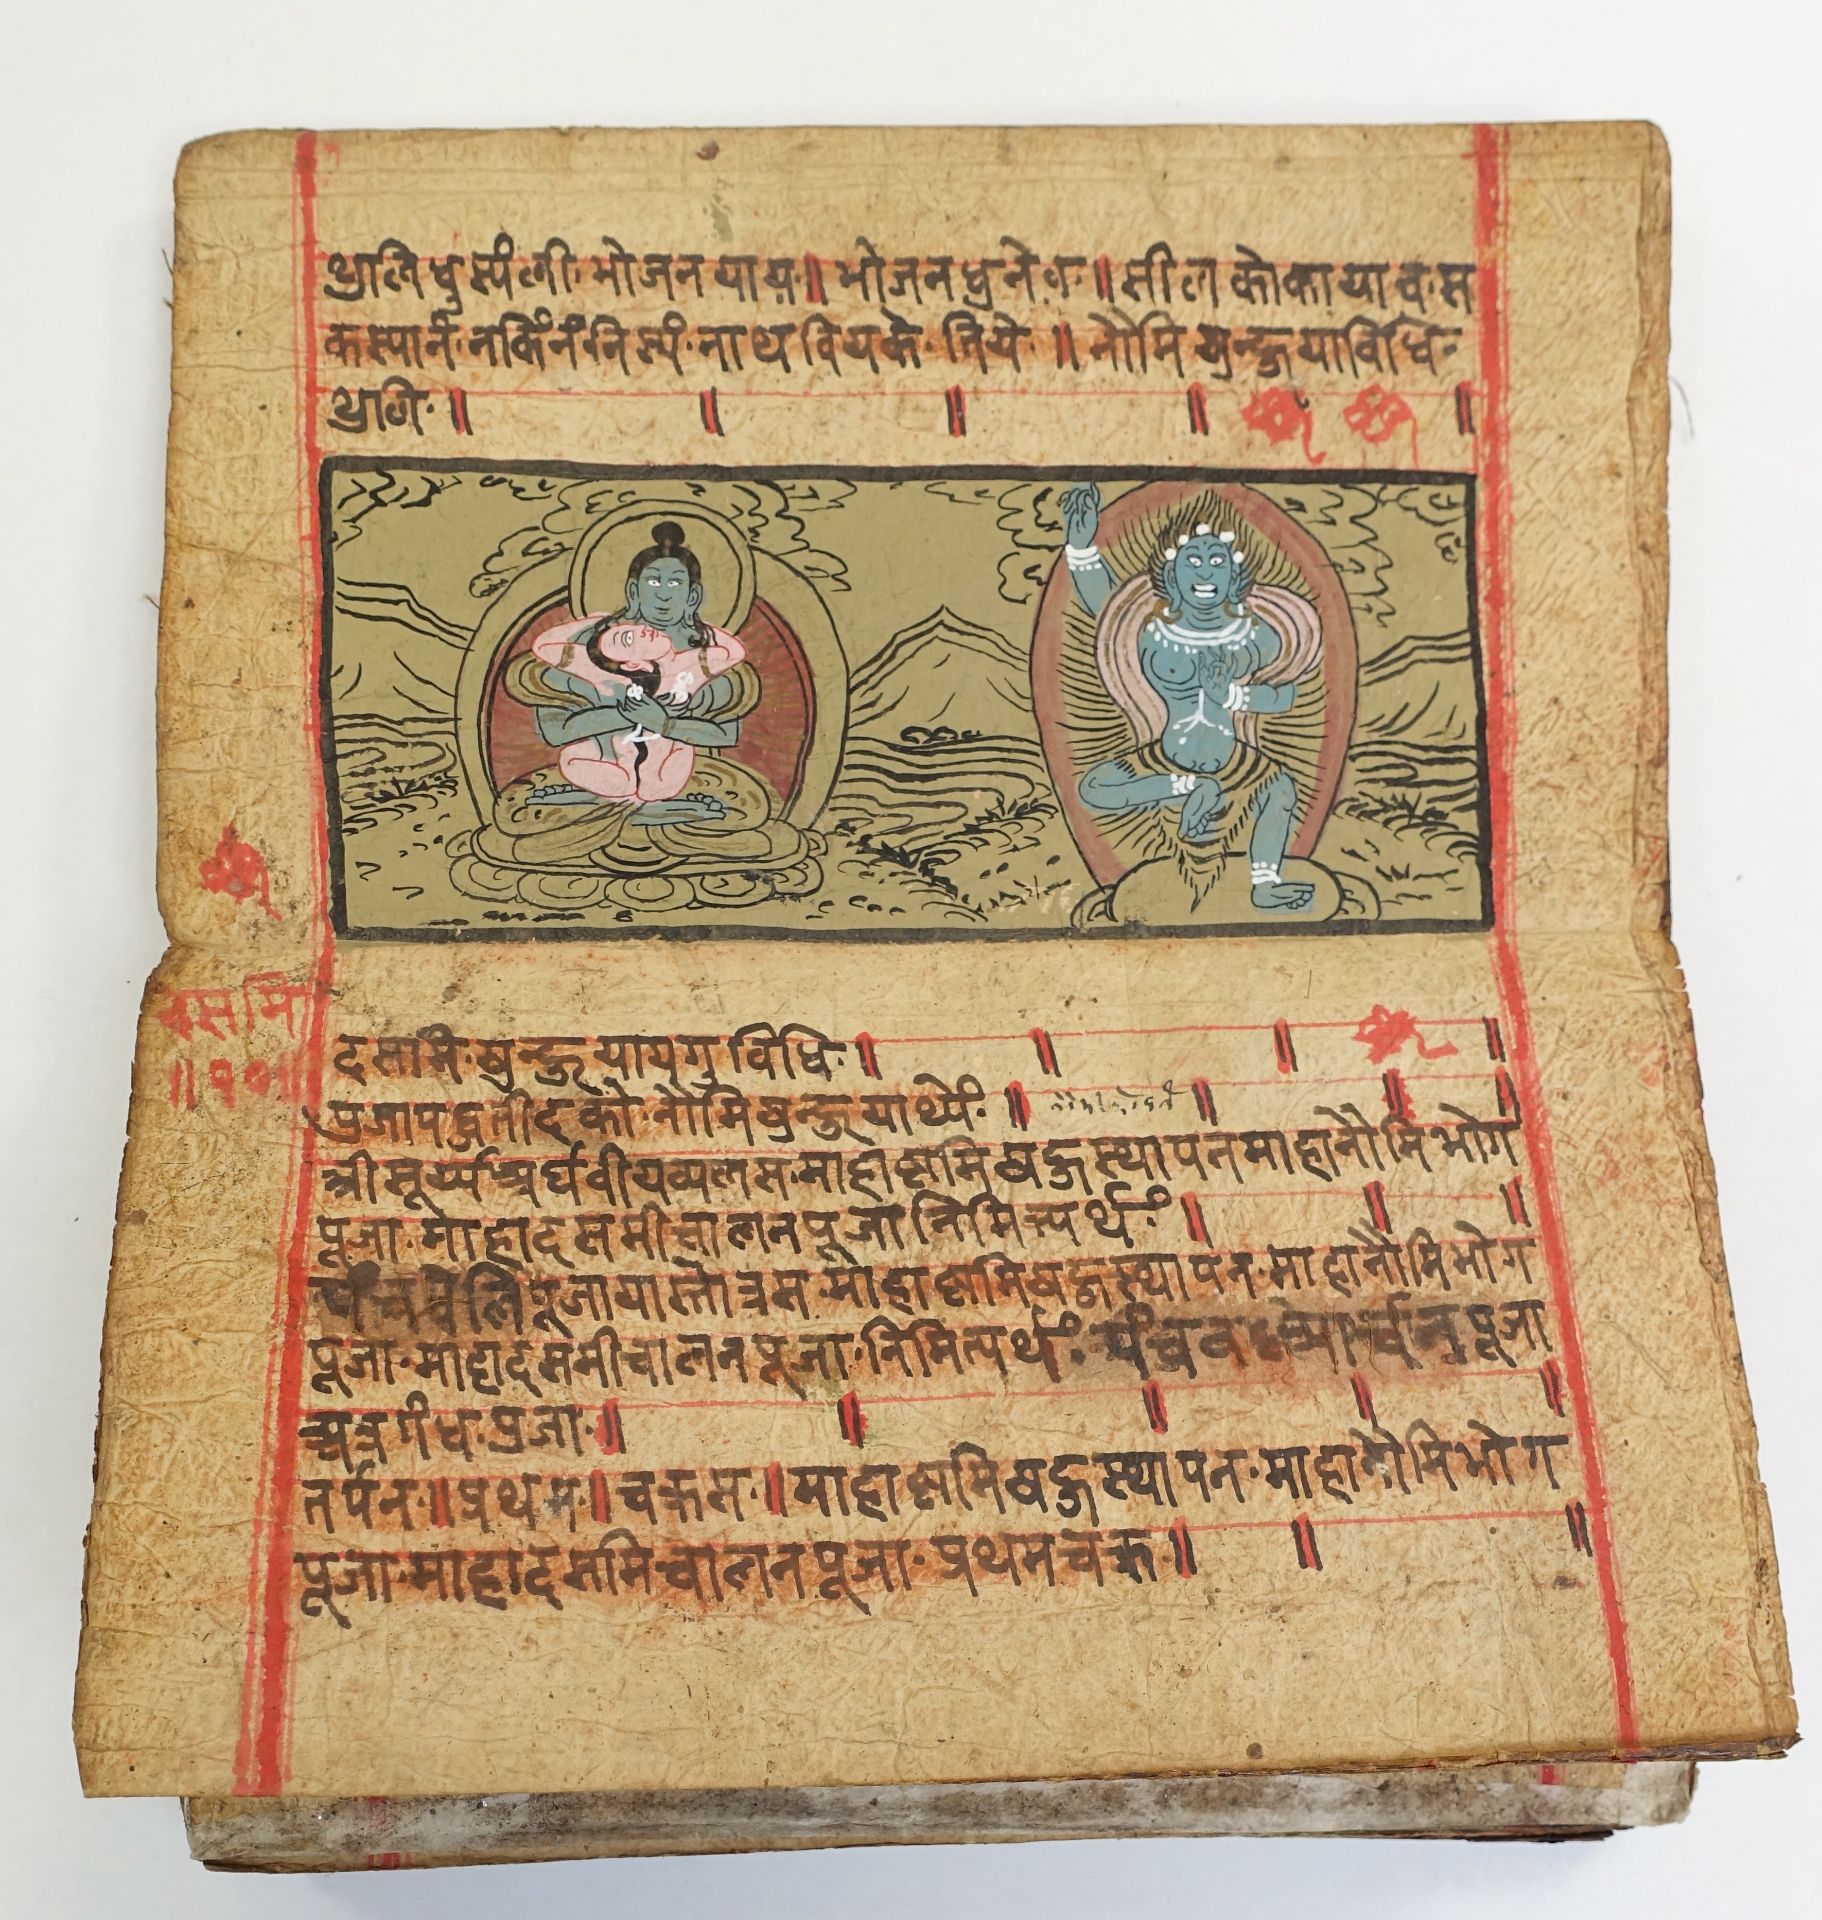 थ्वलि धुस्यंली भोजन याय ॥ भोजन धुनेव ॥ सील कोकायाव स
कस्यानं नकिंनं निस्यं नाथ वियके जिये ॥ नौमि खुन्हुयाविधि
थ्वति ॥
दसमि
॥ १० ॥
दसमि खुन्हु याय्गु विधि ॥
पूजापद्धतीदको नौमिखुन्हुयाथ्यें ॥
श्रीसूर्य्यअर्घवीयव्यलस माहाष्टमि खड्गस्थापन माहानौमि भोग
पूजा माहादसमीचालनपूजा निमित्यर्थं ॥
पूजायास्तोत्रस माहाष्टमिखड्गस्थापन माहानौमिभोग
पूजा माहादसमीचालनपूजा निमित्यर्थं पूजा
पूजा ॥
तर्पन ॥ प्रथम ॥ चक्रस ॥ माहाष्टमिखड्गस्थापन माहानौमिभोग
पूजा माहादसमिचालनपूजा प्रथमचक्र ॥